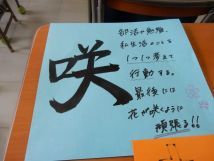 咲
部活や勉強、
私生活のことを
1つ1つ考えて
行動する。
最後には
花が咲くように
頑張る!!